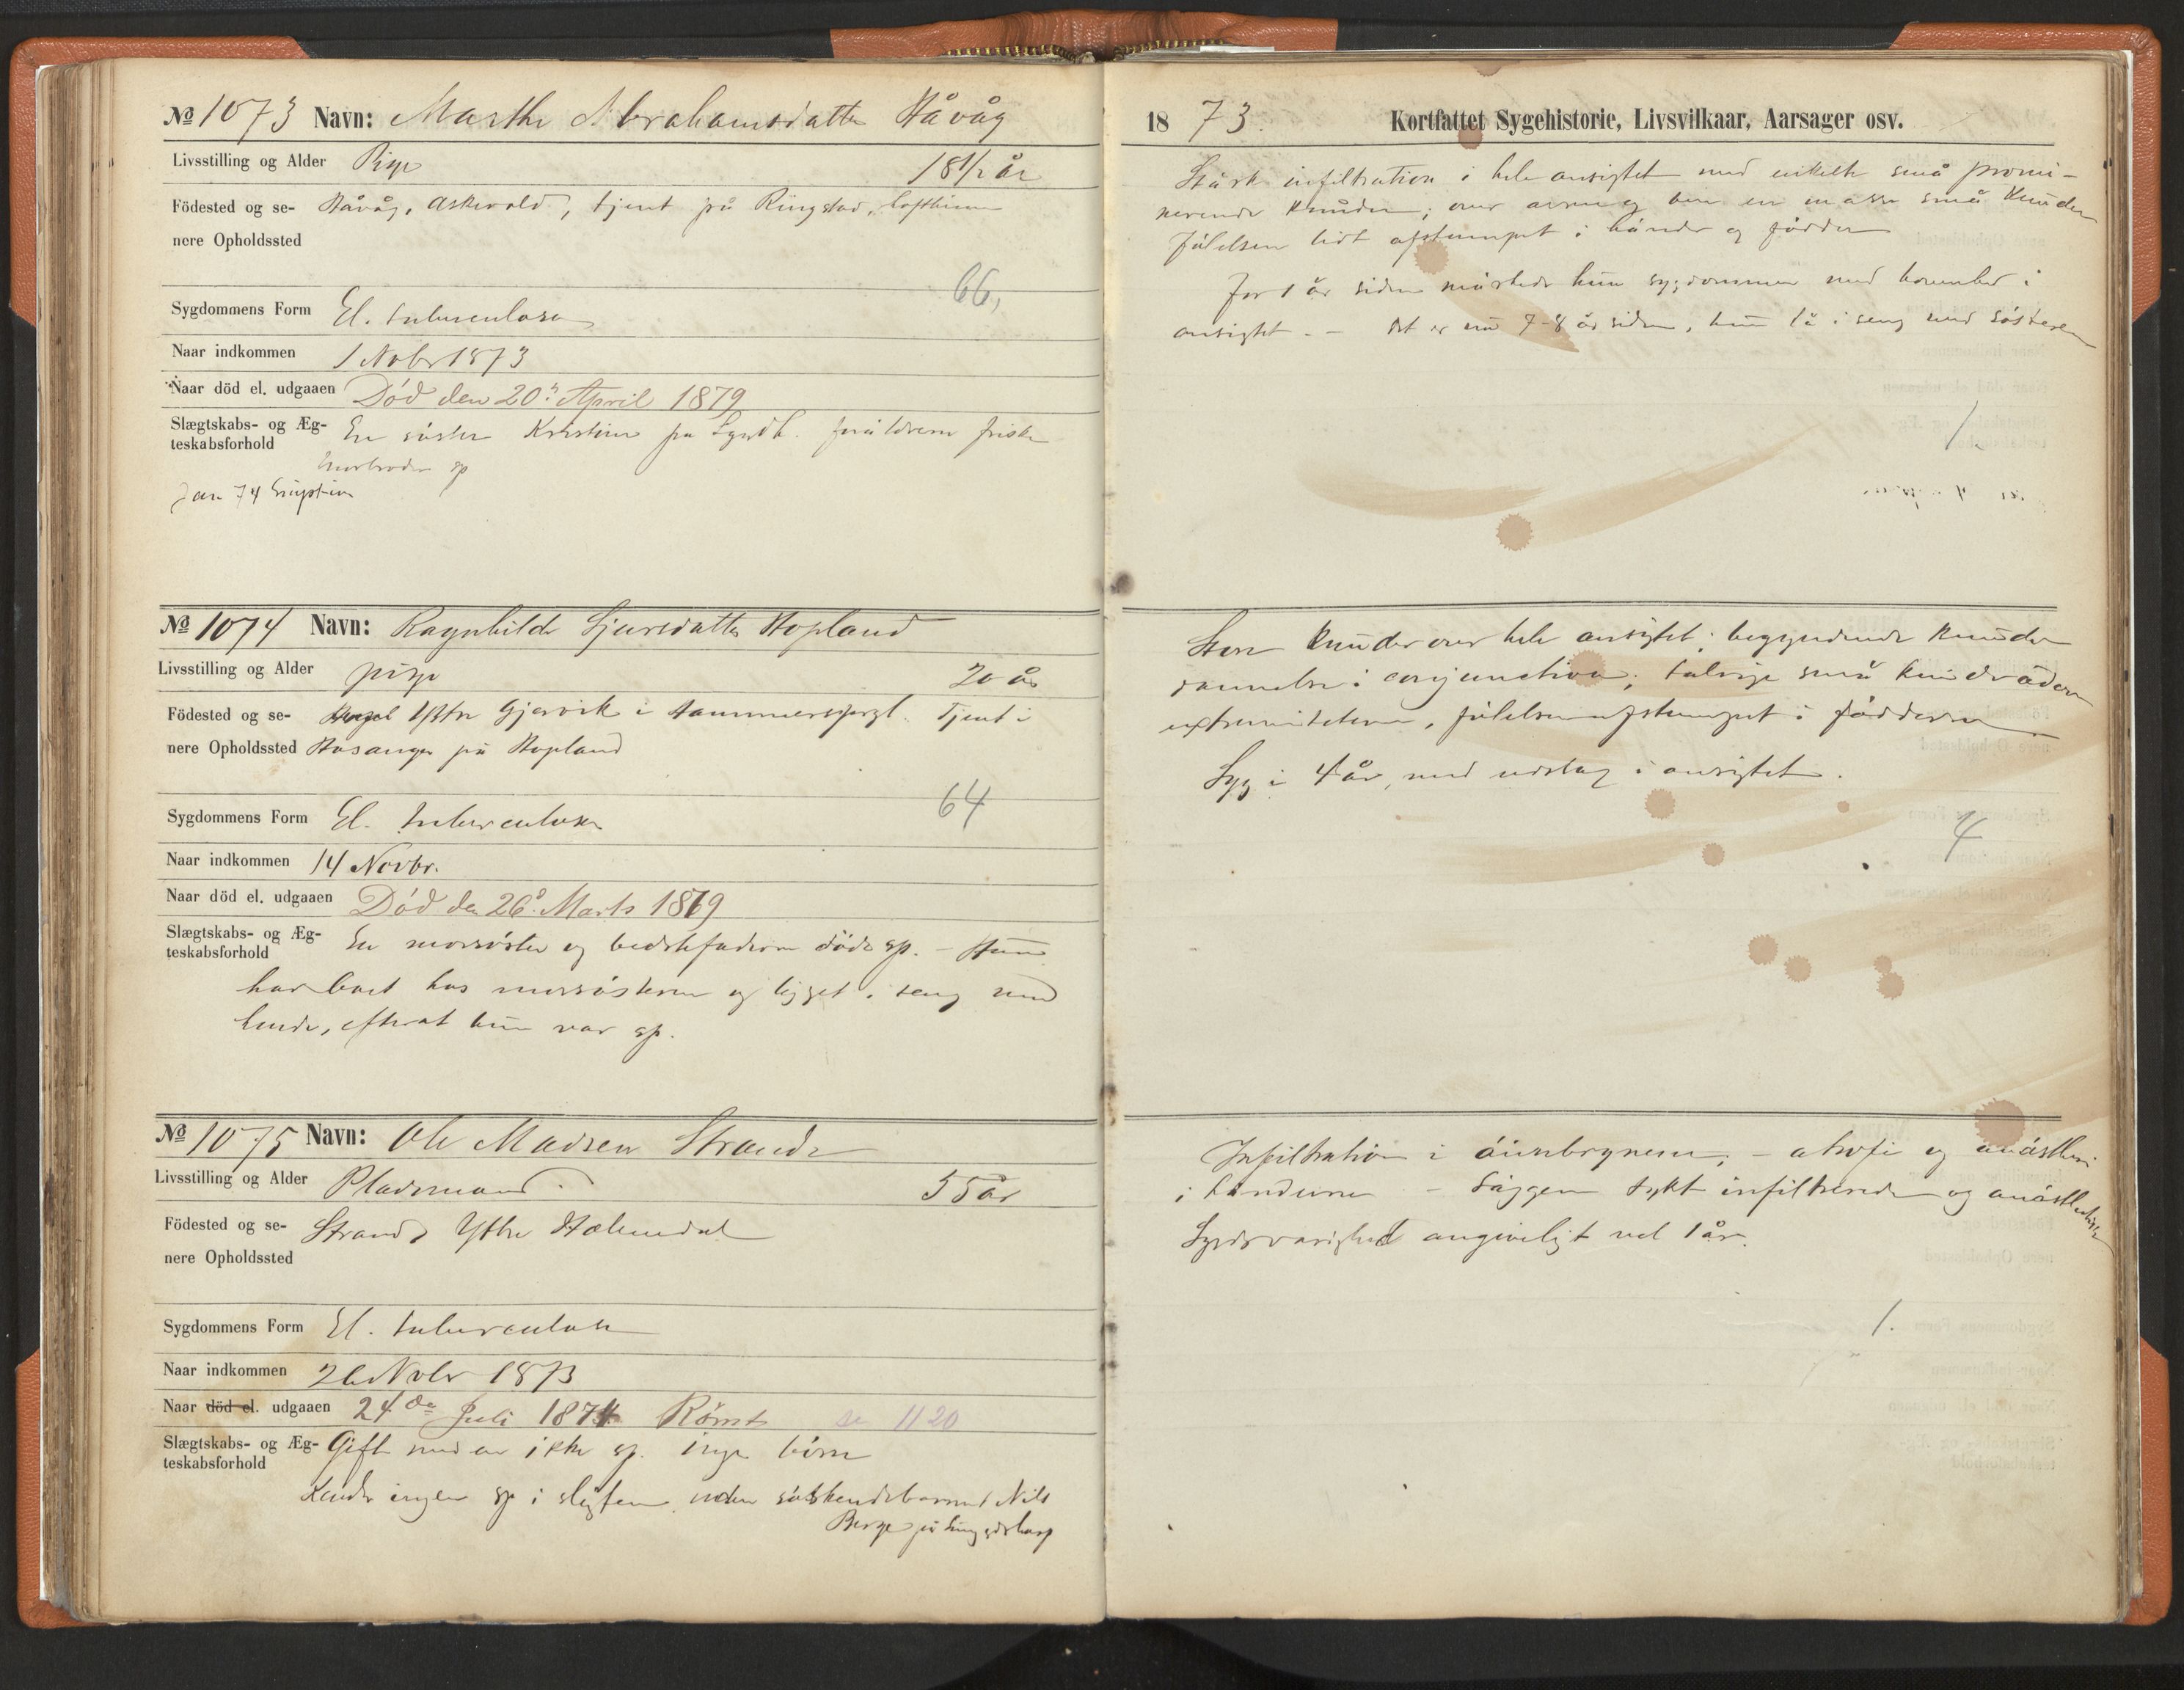 № 1073 Navn: Marthe Abrahamsdatter Håvåg
Livsstilling og Alder Pige 18½ år
Födested og se- Håvåg, Askevold, tjent på Ringstad,
nere Opholdssted
66,
Sygdommens Form El. tuberculosa
Naar indkommen 1 Novbr 1873
Naar död el. udgaaen Död den 20de April 1879
Slægtskabs- og Æg- En søster Kristine på Lgndh. forældrene friske
teskabsforhold
morbroder sp
Jan 74 Eruption
№ 1074 Navn: Ragnhilde Sjursdatter Hopland
Livsstilling og Alder pige 20 år
Födested og se- Ystre Gjervik i Hammersprgl. Tjent i
nere Opholdssted Hosanger på Hopland
64
Sygdommens Form El. tuberculosa
Naar indkommen 14 Novbr.
Naar död el. udgaaen Död den 26de Marts 1879
Slægtskabs- og Æg- En morsøster og bedstefaderen døde sp. - Hun
teskabsforhold
har boet hos morsøsteren og ligget i seng med
hende, efterat hun var sp.
№ 1075 Navn: Ole Madsen Strande
Livsstilling og Alder Pladsmand. 55 år
Födested og se- Strand, Yttre Holmedal
nere Opholdssted
Sygdommens Form El. tuberculosa
Naar indkommen 26 Novbr 1873
Naar död el. udgaaen 24de Juli 1874 Rømt se 1120
Slægtskabs- og Æg- Gift med en ikke sp. inge børn
teskabsforhold
Kender ingen sp i slegten uden søskendebarnet Nils
Berge på Lungegdshosp
18 73. Kortfattet Sygehistorie, Livsvilkaar, Aarsager osv.
Stærk infiltration i hele ansigtet med enkelte små promi-
nerende knuder; over arme og ben en masse små knuder
følelsen lidt afstumpet i hænder og fødder
For 1 år siden mærkede hun sygdommen med knuder i
ansigtet. - Det er nu 7-8 år siden, hun lå i seng med søsteren
1.
Store knuder over hele ansigtet; begyndende knude
dannelse i conjunctiva; talrige små knuder å den
extremiteterne, følelsen afstumpet i fødderne
Syg i 4 år, med udslag i ansigtet.
4
Infiltration i øienbrynene; - atrofi og anæsthesi
i hænderne - Læggene tykt infiltrerede og anæsthetiske
Sygdsvarighed angiveligt vel 1 år.
1.